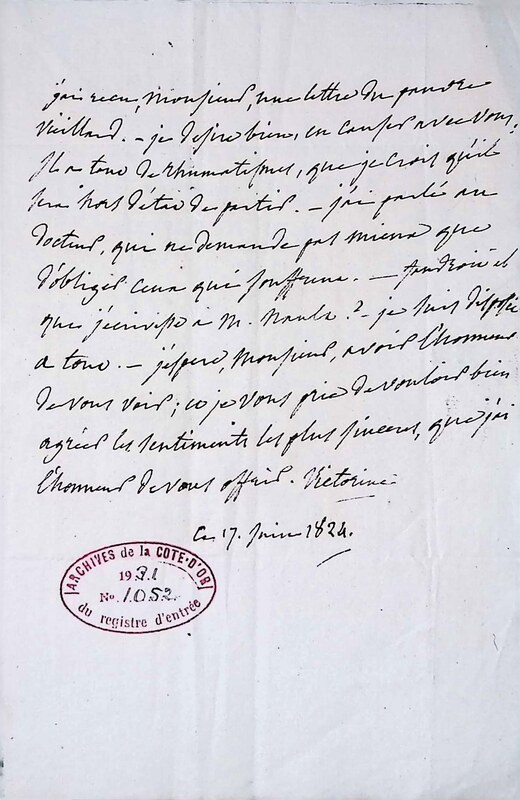 j'ai reçu, Monsieur, une lettre du pauvre
vieillard. - je desire bien, en causer avec vous,
Il a tant de rhumatismes, que je crois qu'il
sera hors d'état de partir. - j'ai parlé au
docteur, qui ne demande pas mieux que
d'obliger ceux qui souffrent. - faudroit il
que j'écrivisse à M. ? - je suis disposée
a tout. - j'espere, Monsieur, avoir l'honneur
de vous voir; et je vous prie de vouloir bien
agréer les sentiments les plus sinceres, que j'ai
l'honneur de vous offrir. Victorine
Ce 17. juin 1824.
ARCHIVES de la COTE-D'OR
1931
No. 1052
du registre d'entrée